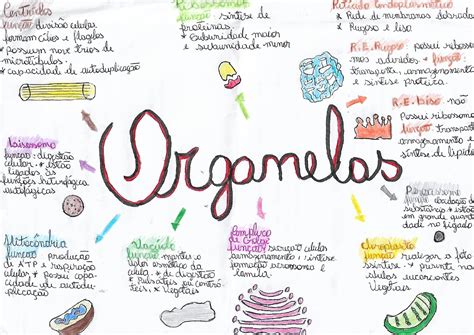 Centríolos
função: divisão celular,
formam cílios e flagelos
* possuem nove trios de
microtúbulos.
* capacidade de autoduplicação
Ribossomos
função: síntese de
proteínas.
* Subunidade maior
e subunidade menor
Retículo Endoplasmático
* Rede de membranas
* Rugoso e liso
R.E. Rugoso: Possui ribossomos
aderidos. função:
transporte, armazenamento
e síntese proteica.
R.E. liso: não
Possui ribossomo
função: transporte
armazenamento e
síntese de lipídeos
Lisossomo
função: digestão
celular. * Estão
ligados às
funções heterofágica
e autofágicas
Organelas
Peroxissomo
função:
substâncias * estão
em grande quantidade
no fígado
Mitocôndria
função: produção
de ATP e respiração
celular. * possui
capacidade de autodu-
plicação
Vacúolo
função: mantém o
celular. * de digestão
* Pulsáteis
Vegetais
Complexo
de Golgi
função: secreção celular
armazenamento, síntese
formação acrossomo e
lamela.
Cloroplasto
função: realizar a fotos-
síntese. * presente
nas células
Vegetais